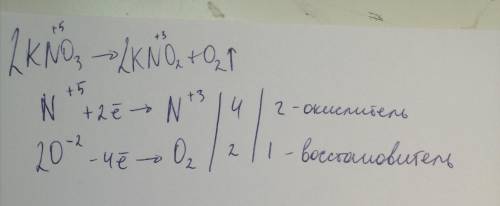 2KN⁺⁵O₃ → 2KN⁺³O₂ + O₂↑
N⁺⁵ + 2ē → N⁺³ | 4 | 2 - окислитель
2O⁻² - 4ē → O₂ | 2 | 1 - восстановитель